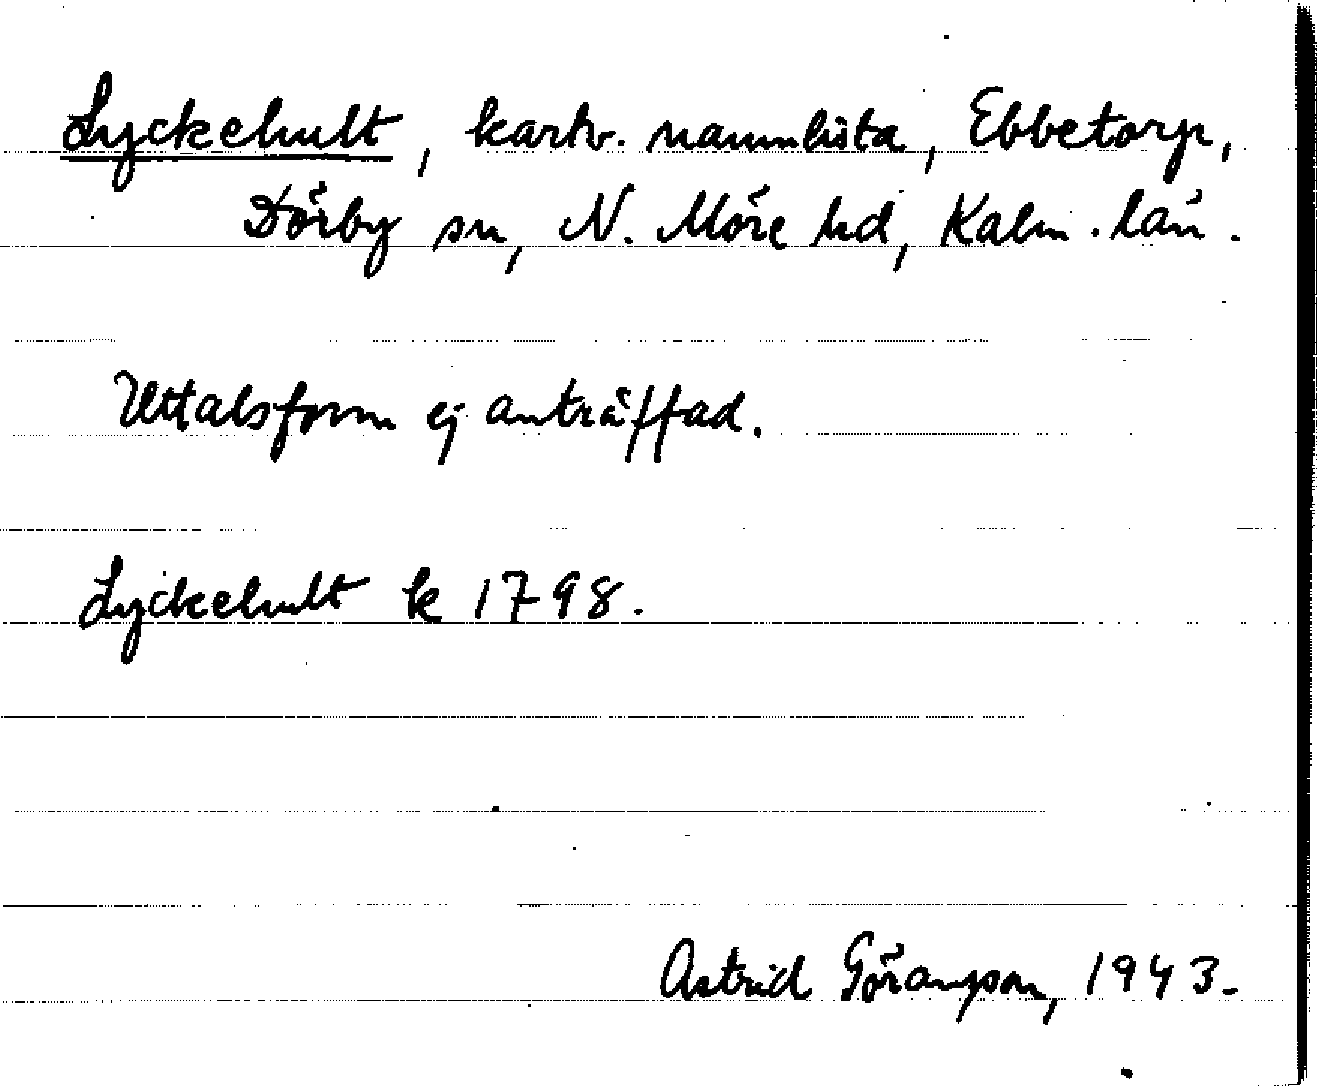 Lyckehult, kartv. namnlista, Ebbetorp,
Dörby sn, N. Möre hd, Kalm. län.
Uttalsform ej anträffad.
Lyckehult k 1798.
Astrid Göranson, 1943.